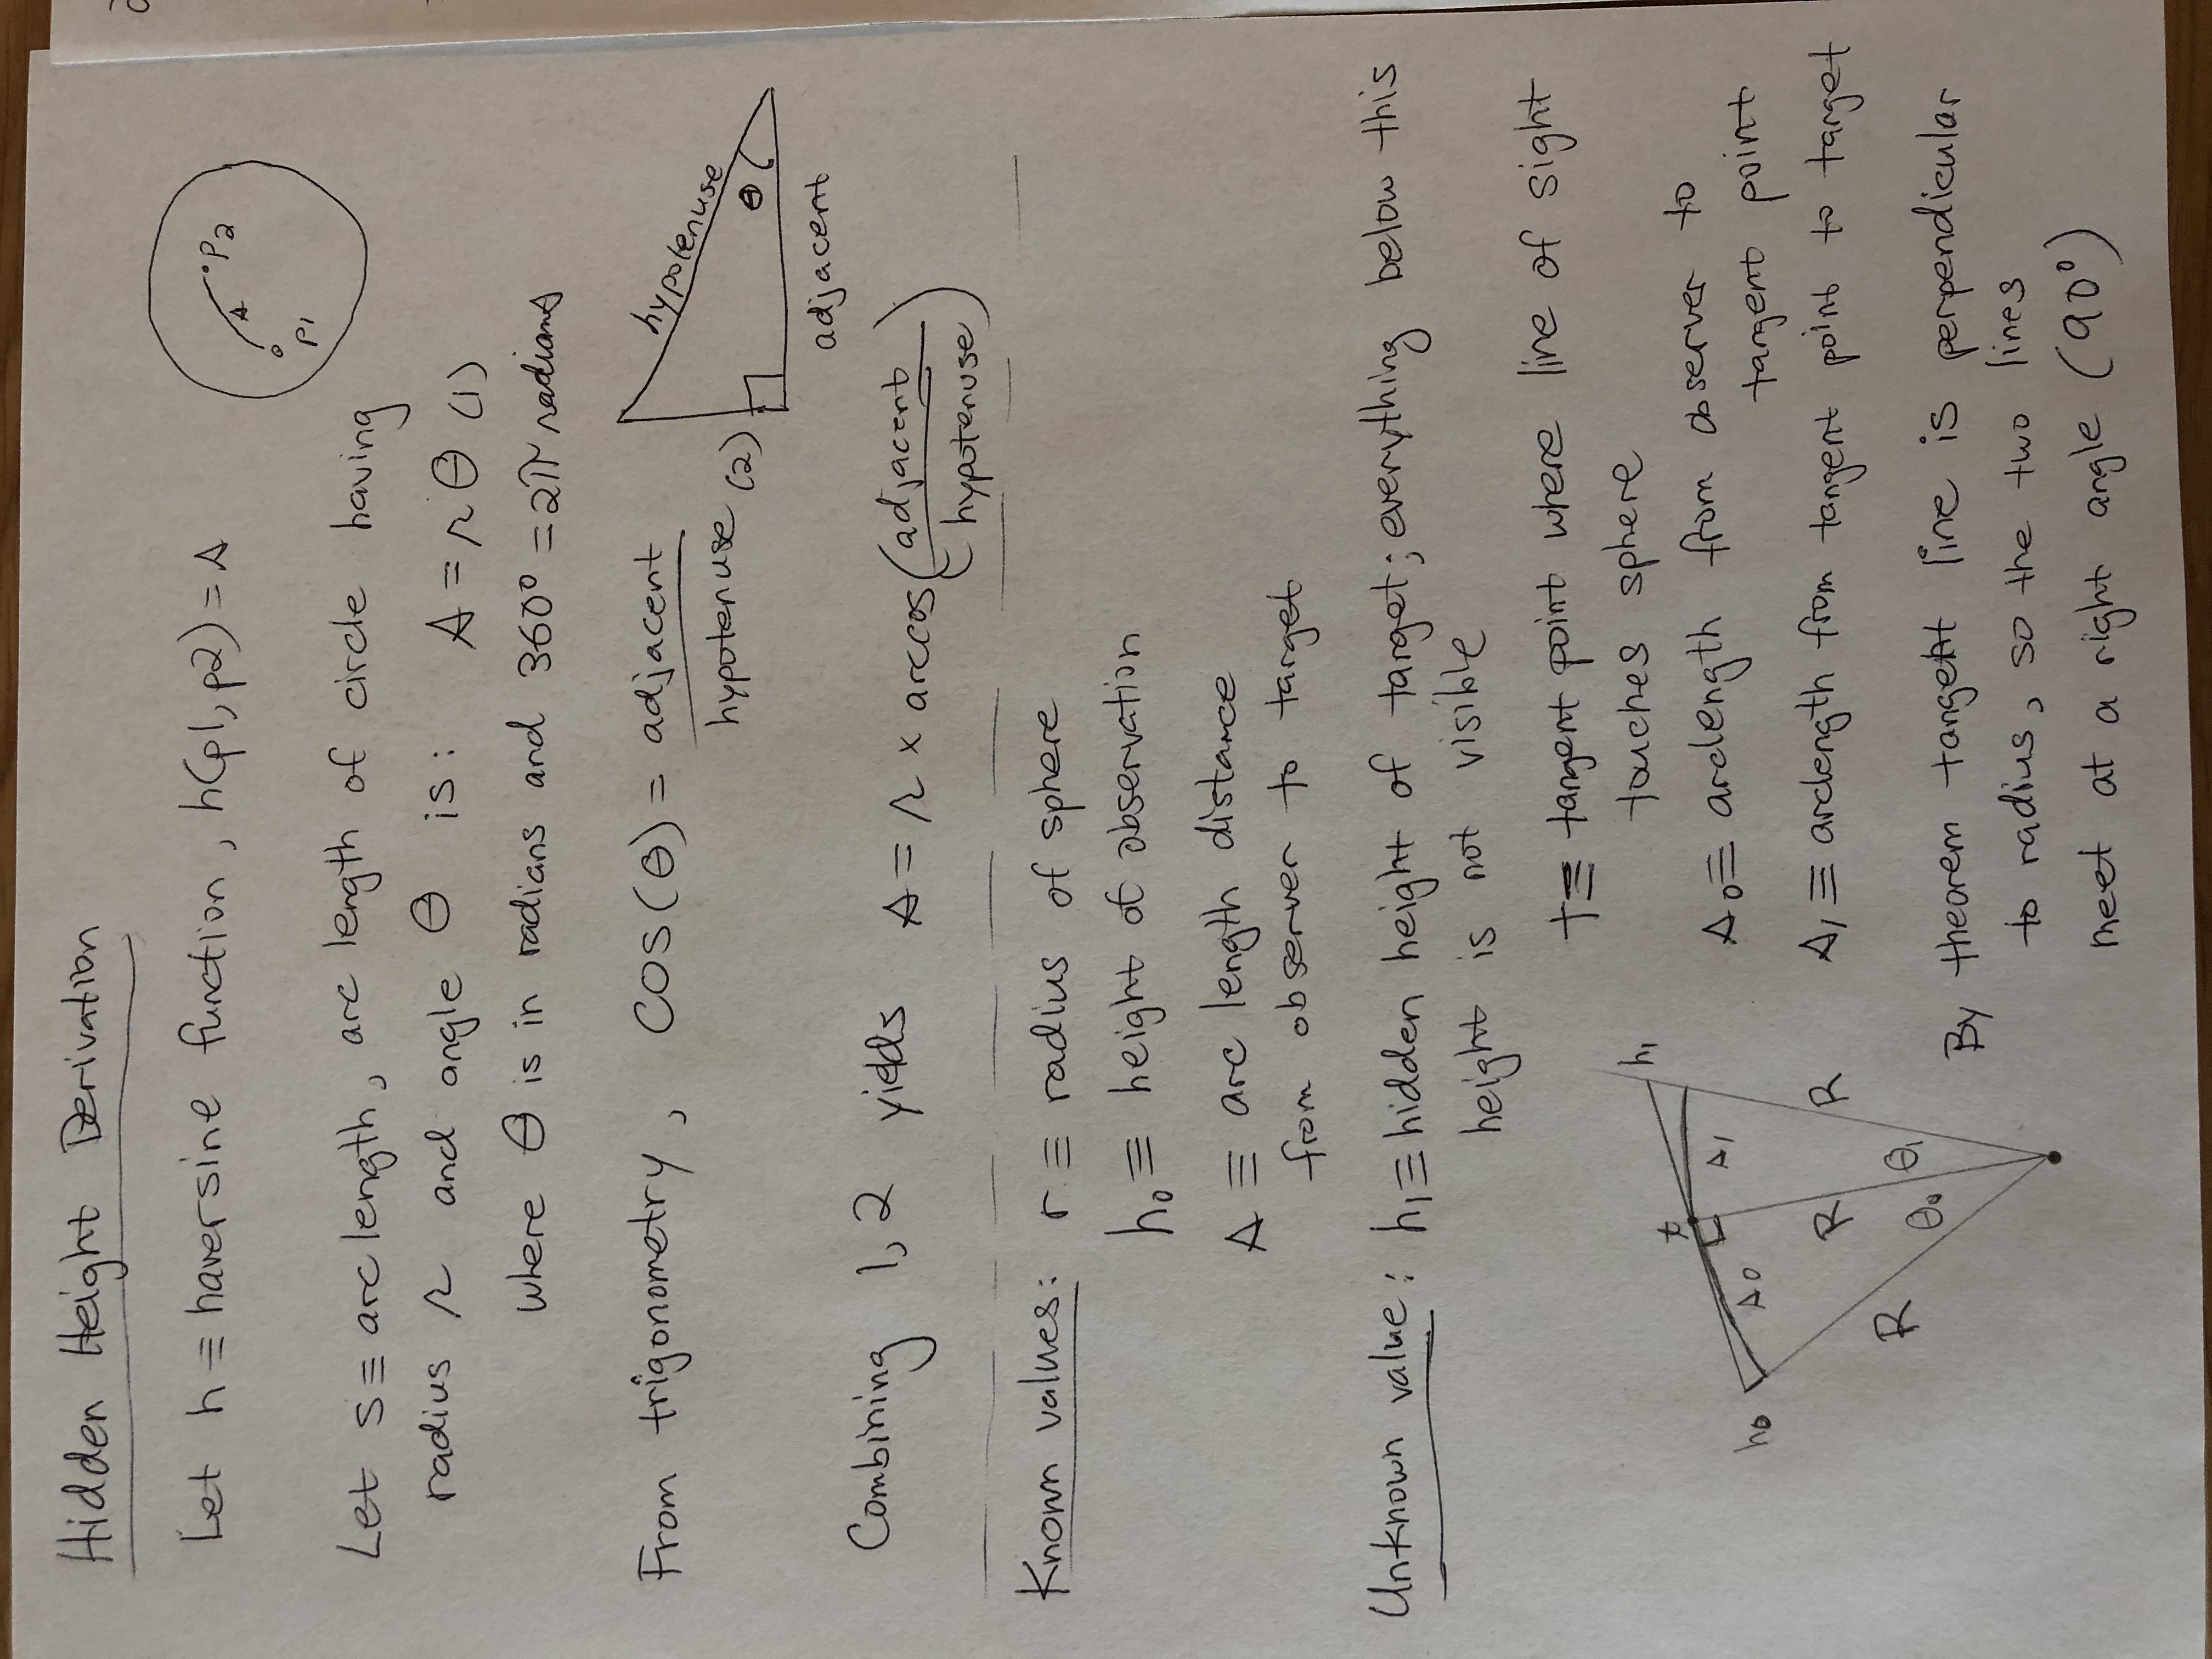 Hidden Height Derivation
Let h ≡ haversine function, h(p1, p2) = s
p2
s
p1
Let s ≡ arc length, arc length of circle having
radius r and angle θ is: s = r θ (1)
where θ is in radians and 360° = 2π radians
From trigonometry, cos(θ) = adjacent
hypotenuse (2)
hypotenuse
θ
adjacent
Combining 1, 2 yields s = r × arccos(adjacent
hypotenuse)
Known values: r ≡ radius of sphere
h₀ ≡ height of observation
s ≡ arc length distance
from observer to target
Unknown value: h₁ ≡ hidden height of target; everything below this
height is not visible
t ≡ tangent point where line of sight
touches sphere
s₀ ≡ arclength from observer to
tangent point
s₁ ≡ arclength from tangent point to target
By theorem tangent line is perpendicular
to radius, so the two lines
meet at a right angle (90°)
h₁
t
s₁
h₀
s₀
R
R
R
θ₀
θ₁